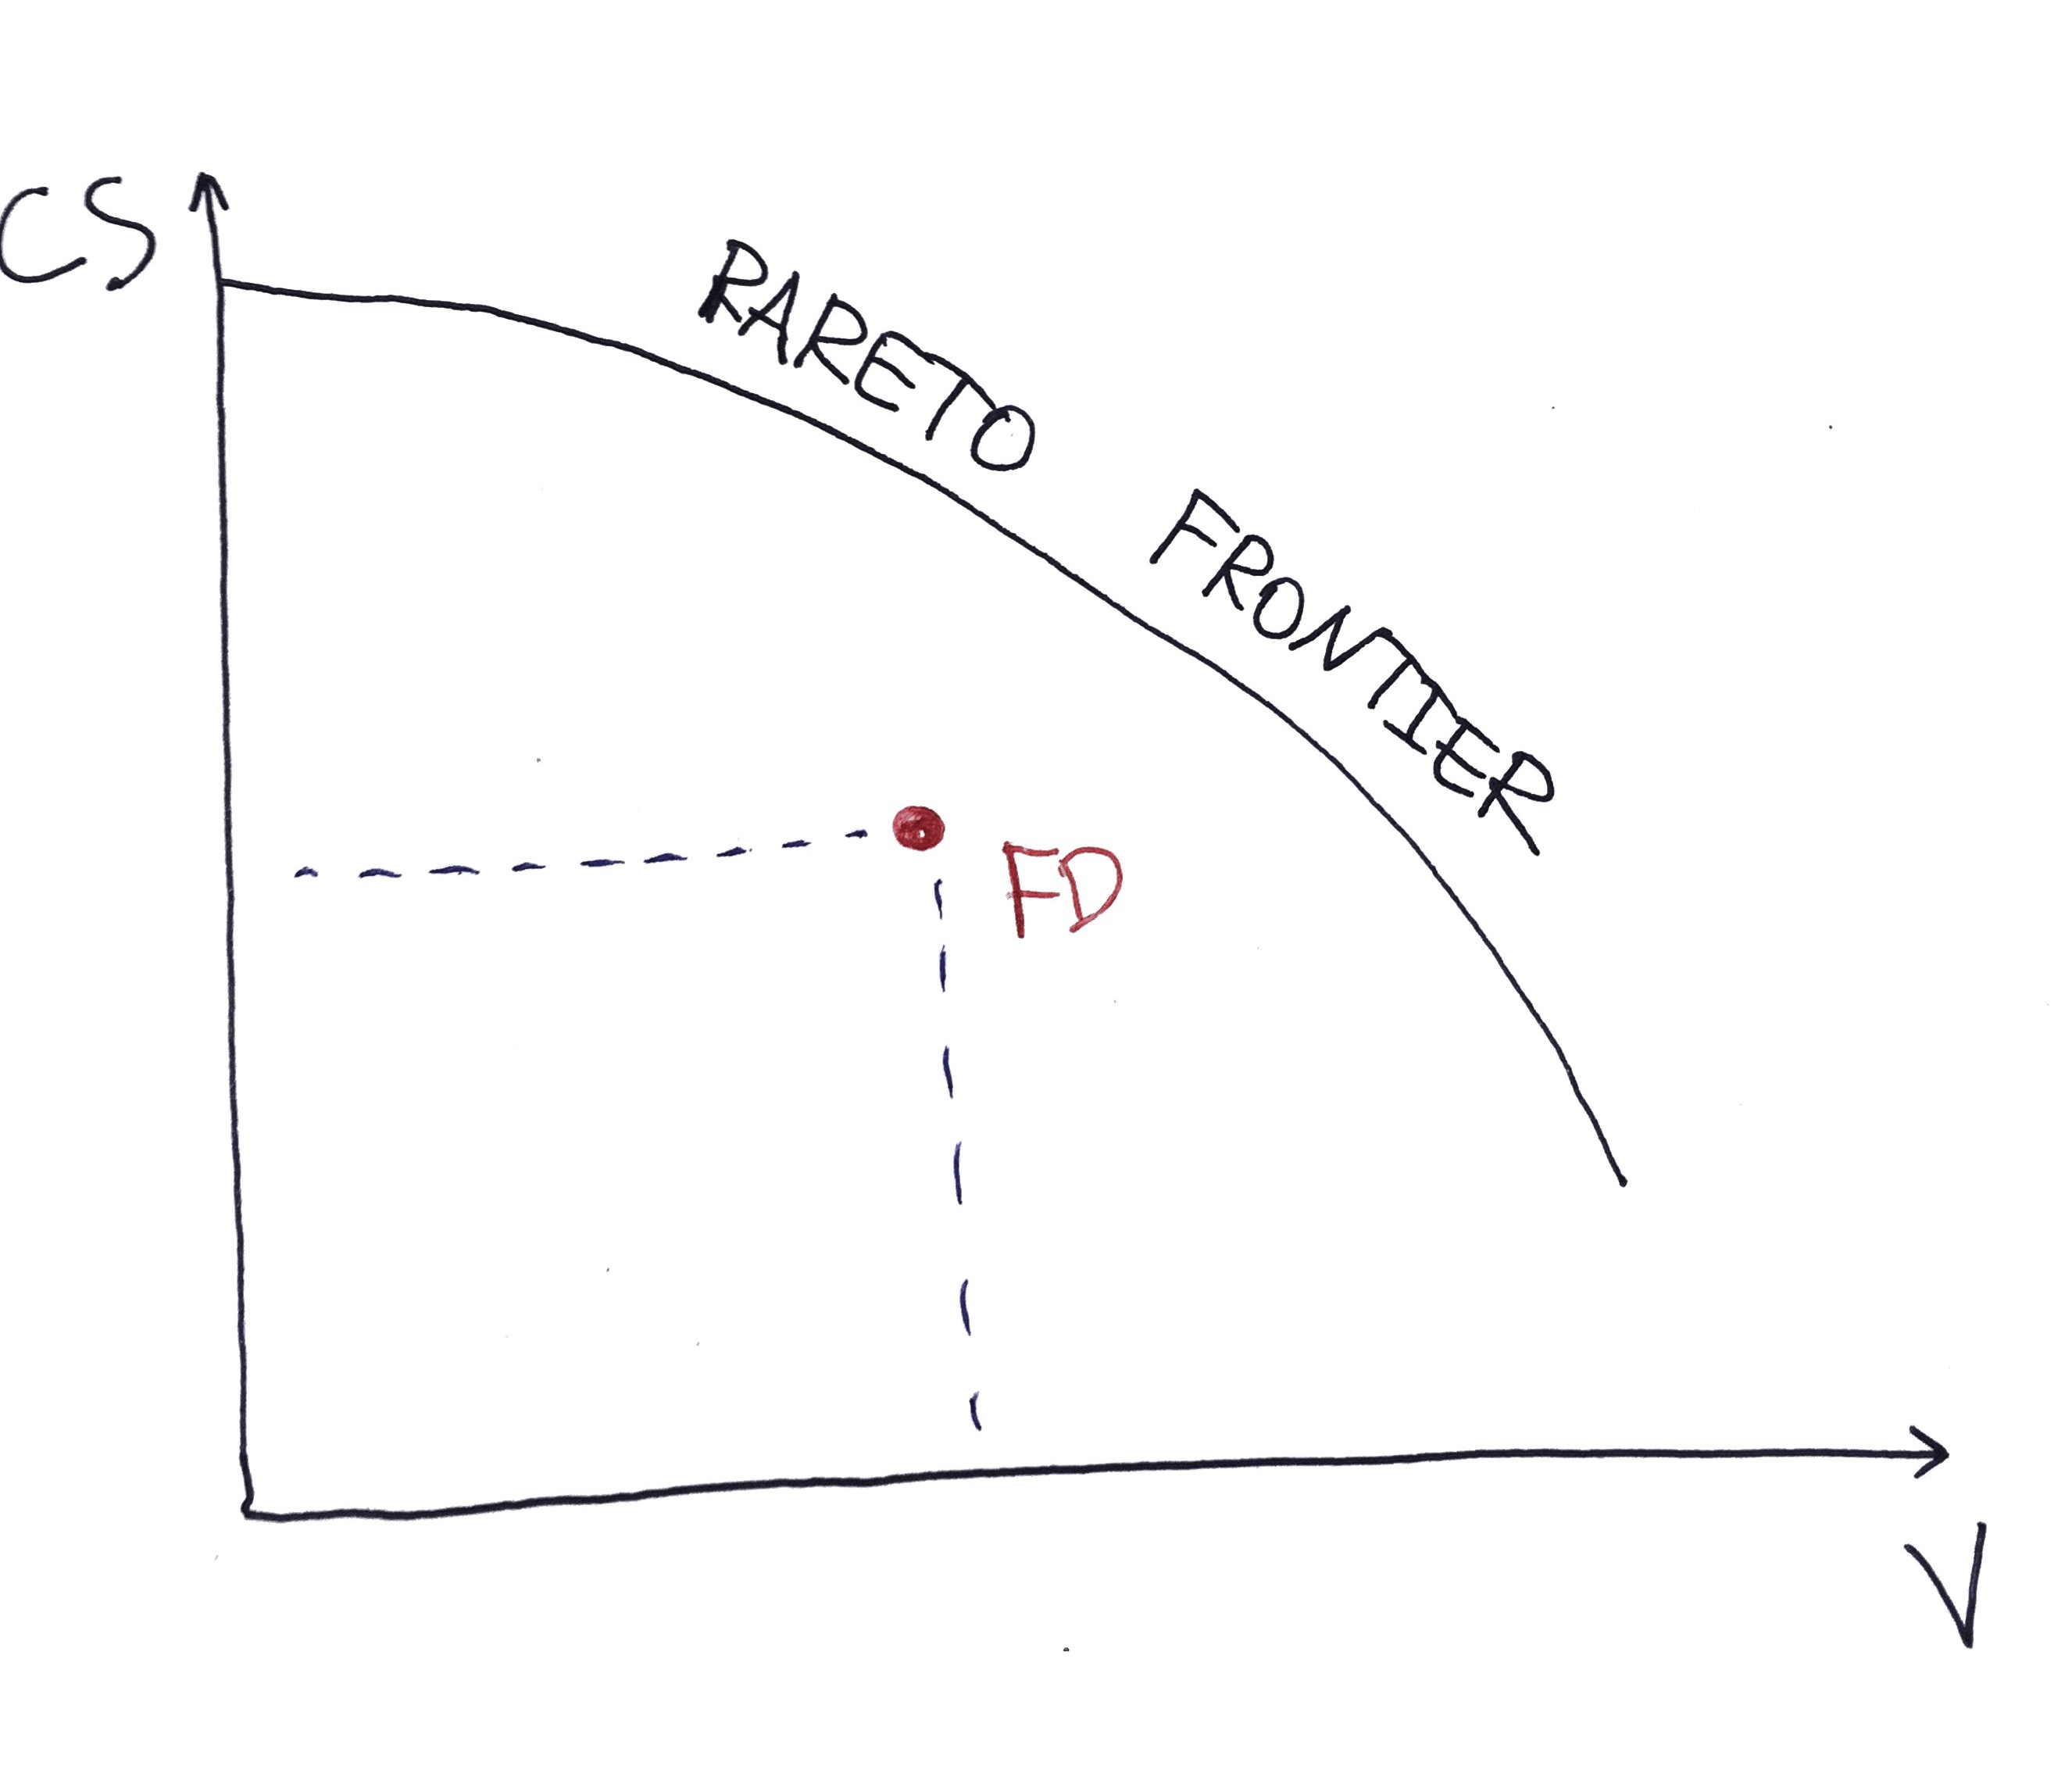 CS
PARETO FRONTIER
FD
V